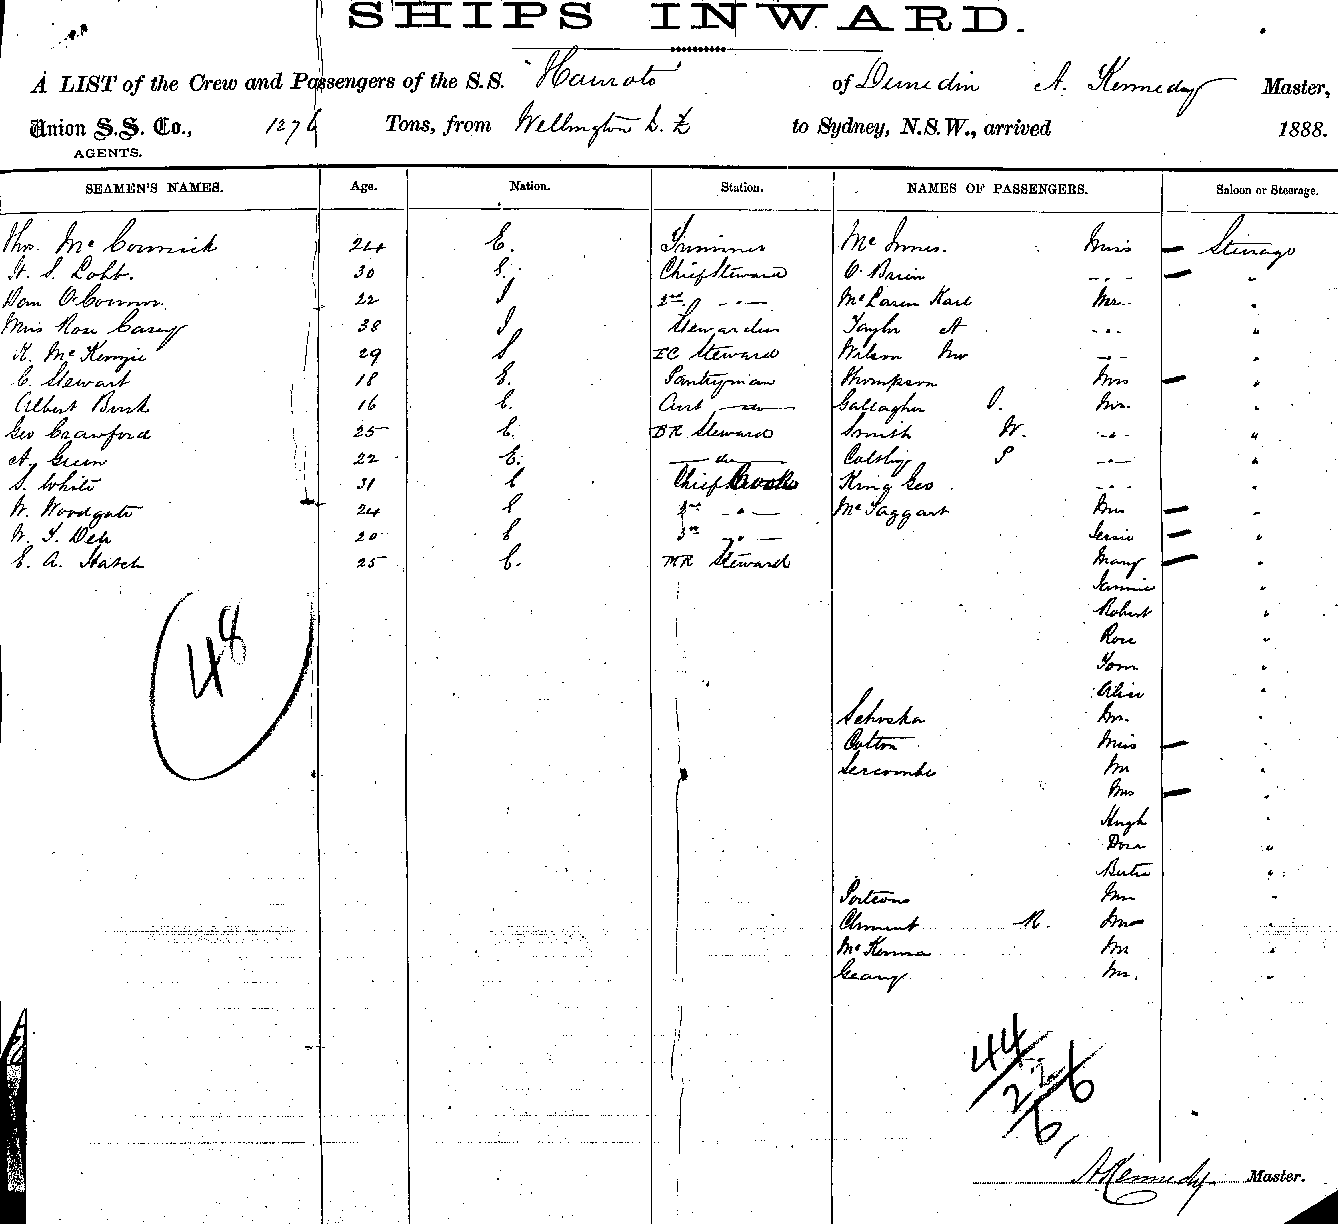 SHIPS INWARD.
A LIST of the Crew and Passengers of the S.S. "Hauroto" of Dunedin A. Kennedy Master,
Union S.S. Co., 1276 Tons, from Wellington N. Z to Sydney, N.S.W., arrived 1888.
AGENTS.
SEAMEN'S NAMES. Age. Nation. Station. NAMES OF PASSENGERS. Saloon or Steerage.
Thos. McCormick 24 E. Trimmer McInnes. Miss Steerage
H. S. Lobb. 30 E. Chief Steward O'Brien -〃- 〃
Dan O'Connor. 22 I 2nd -〃- McLaren Karl Mr. 〃
Miss Rose Carey 38 I Stewardess Taylor A -〃- 〃
K. McKenzie 29 S FC Steward Wilson Wm -〃- 〃
C. Stewart 18 E. Pantryman Thompson Mrs 〃
Albert Bush 16 E. Asst -do- Gallagher J. Mr. 〃
Geo Crawford 25 E. BR Steward Smith W. -〃- 〃
A. Green 22 E. -do- P -〃- 〃
S. White 31 E Chief Cook King Geo -〃- 〃
W. Woodgate 24 E 2nd -〃- McTaggart Mrs 〃
W. J. 20 E 3rd -〃- Jessie 〃
E. A. Hatch 25 E. MR Steward Mary 〃
Jannie 〃
Robert 〃
Rose 〃
Tom 〃
Alice 〃
48
Mr. 〃
Cotton Miss 〃
Sercombe Mr 〃
Mrs 〃
Hugh 〃
Dora 〃
Bertie 〃
Porteous Mr 〃
Clement R. Mr 〃
McKenna Mr 〃
Geary Mr. 〃
44/6
22/6
A Kennedy Master.